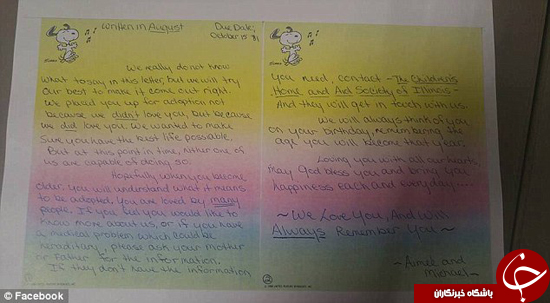 Written in August
Due Date;
October 15 '81
We really do not know
what to say in this letter, but we will try
our best to make it come out right.
We placed you up for adoption not
because we didn't love you, but because
we did love you. We wanted to make
sure you have the best life possible.
But at this point in time, neither one of
us are capable of doing so.
Hopefully when you become
older, you will understand what it means
to be adopted, you are loved by many
people. If you feel you would like to
know more about us, or if you have
a medical problem which could be
hereditary, please ask your mother
or father for the information.
If they don't have the information
you need, contact - The Children's
Home and Aid Society of Illinois -
And they will get in touch with us.
We will always think of you
on your birthday, remembering the
age you will become that year.
Loving you with all our hearts,
may God bless you and bring you
happiness each and everyday....
~ We Love You, And will
Always Remember You ~
~ Aimee and
Michael ~
© Facebook
باشگاه خبرنگاران